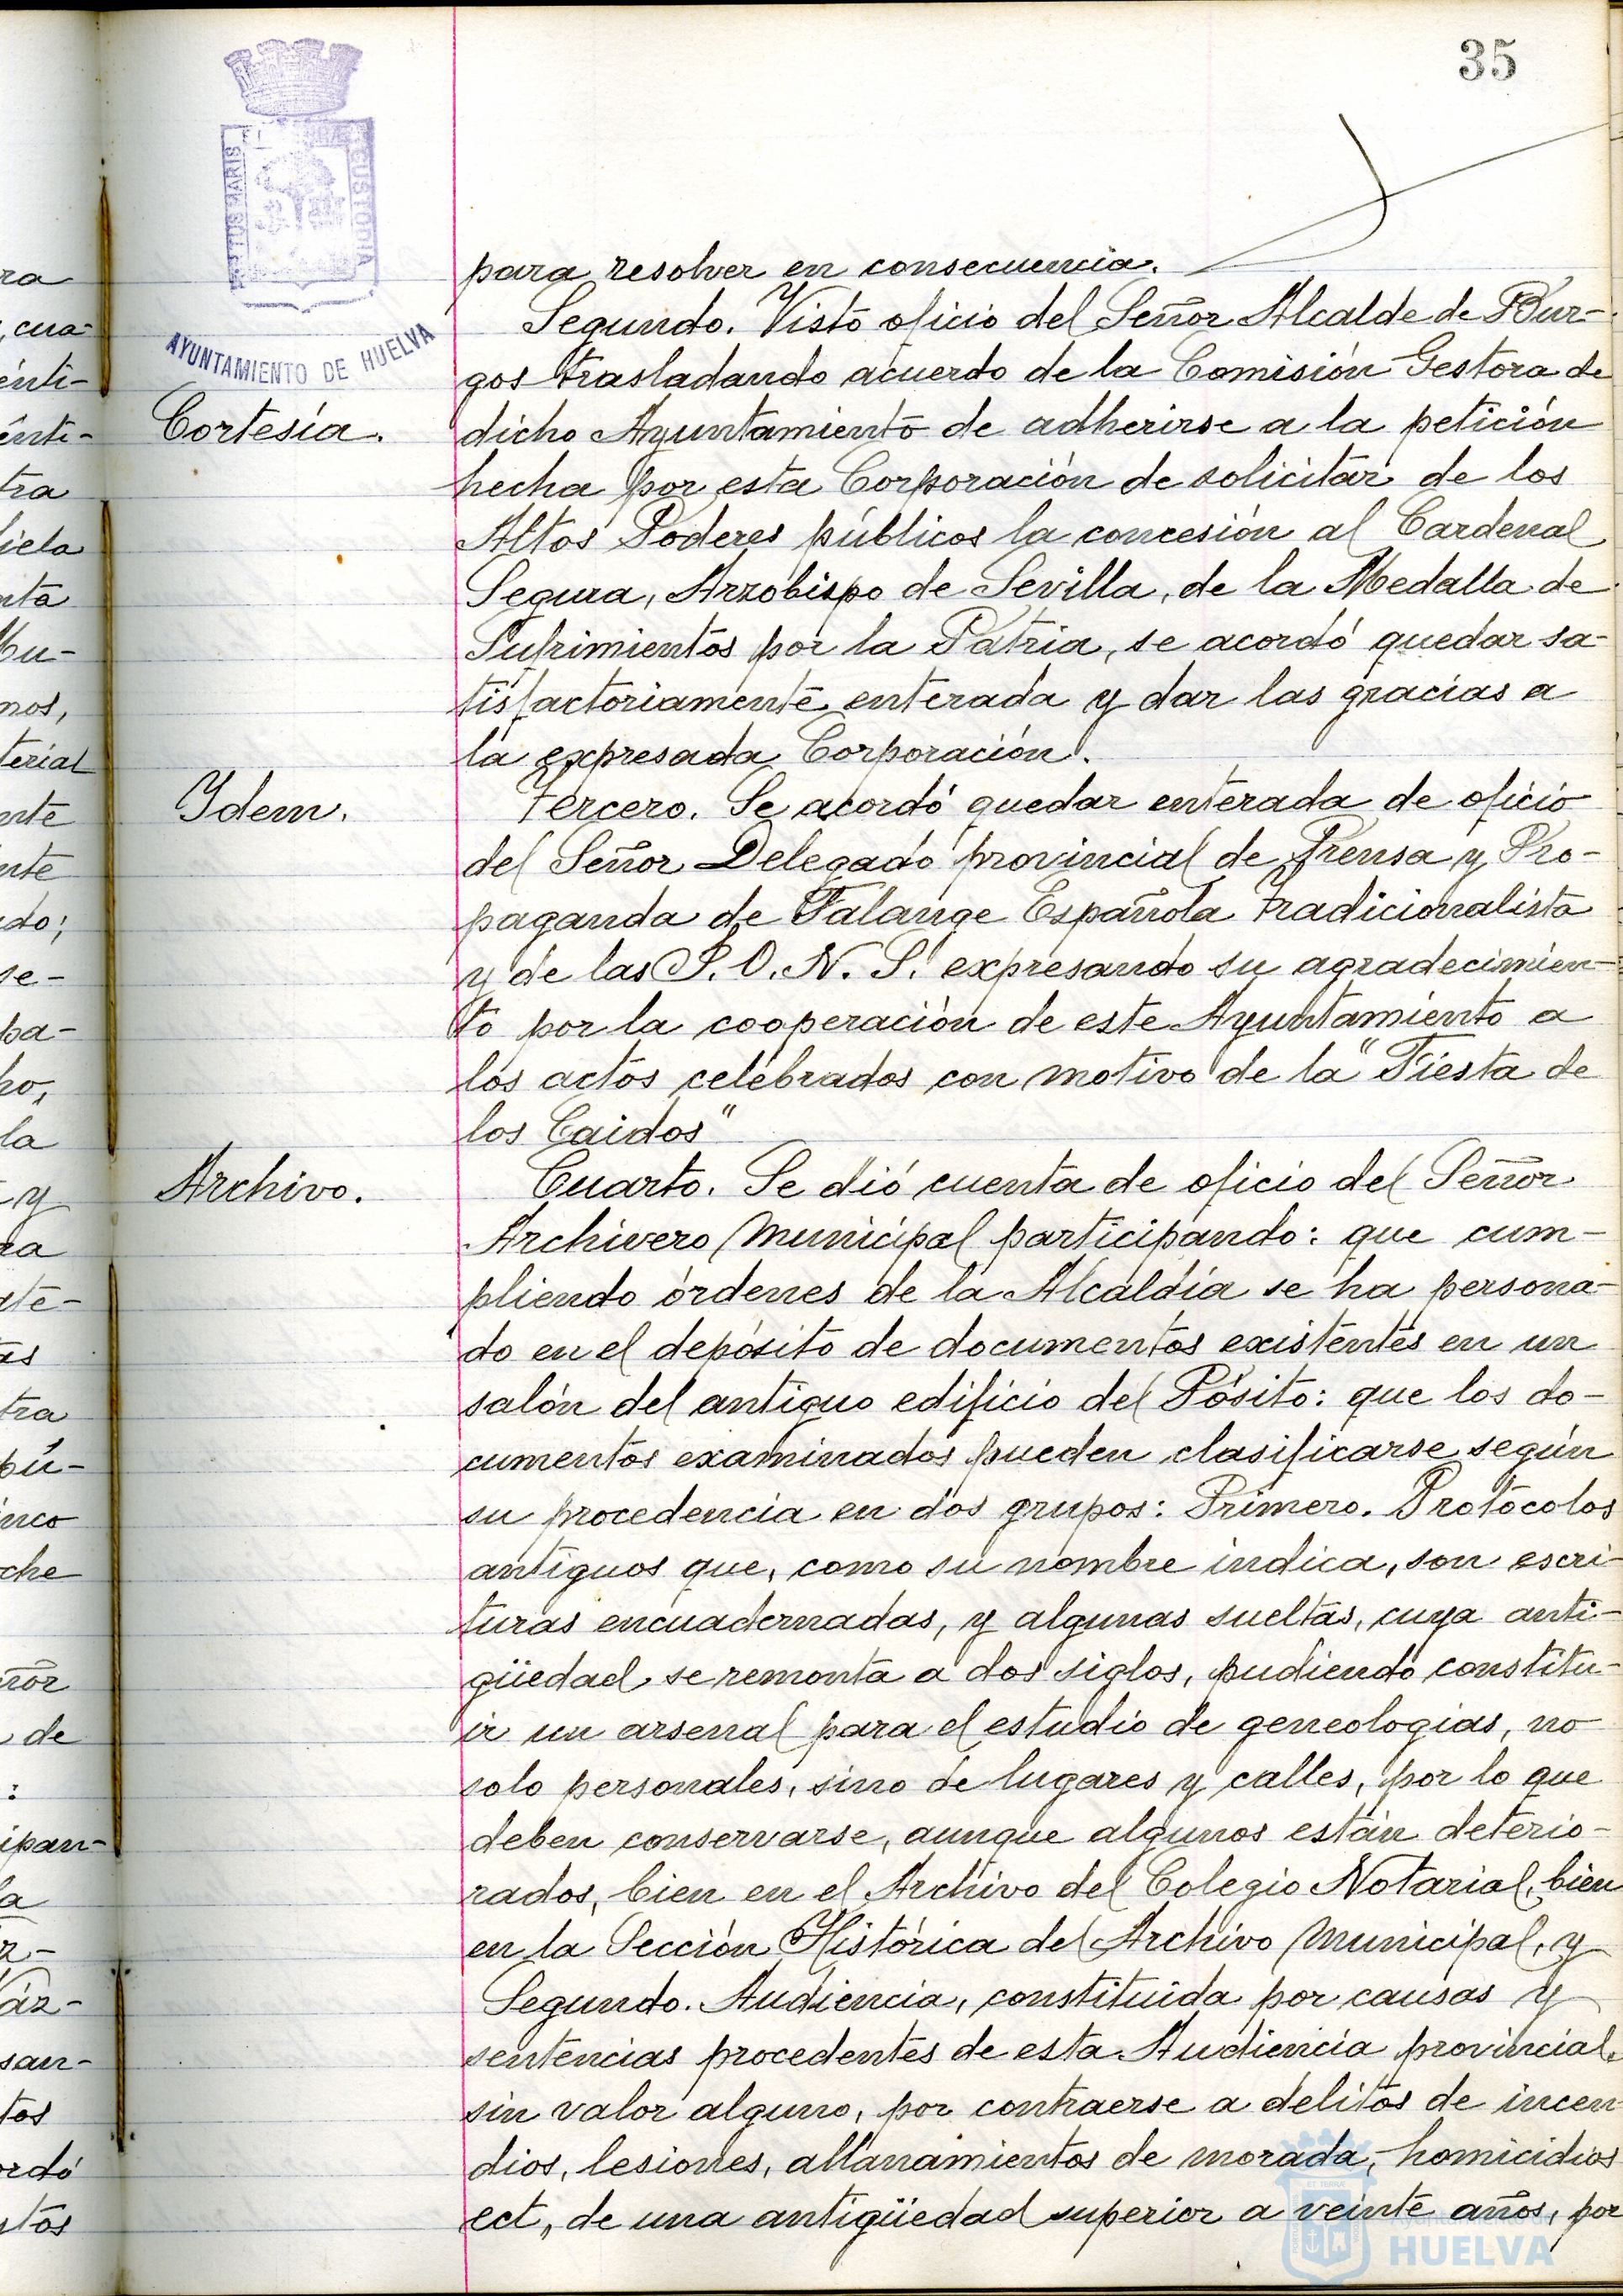 35
PORTUS MARIS ET TERRAE CUSTODIA
AYUNTAMIENTO DE HUELVA
para resolver en consecuencia.
Segundo. Visto oficio del Señor Alcalde de Bur-
gos trasladando acuerdo de la Comisión Gestora de
Cortesía.
dicho Ayuntamiento de adherirse a la petición
hecha por esta Corporación de solicitar de los
Altos Poderes públicos la concesión al Cardenal
Segura, Arzobispo de Sevilla, de la Medalla de
Sufrimientos por la Patria, se acordó quedar sa-
tisfactoriamente enterada y dar las gracias a
la expresada Corporación.
Ydem.
Tercero. Se acordó quedar enterada de oficio
del Señor Delegado provincial de Prensa y Pro-
paganda de Falange Española tradicionalista
y de las J. O. N. S. expresando su agradecimien-
to por la cooperación de este Ayuntamiento a
los actos celebrados con motivo de la "Fiesta de
los Caidos"
Archivo.
Cuarto. Se dió cuenta de oficio del Señor
Archivero Municipal participando: que cum-
pliendo órdenes de la Alcaldía se ha persona-
do en el depósito de documentos existentes en un
salón del antiguo edificio del Pósito: que los do-
cumentos examinados pueden clasificarse según
su procedencia en dos grupos: Primero. Protocolos
antiguos que, como su nombre indica, son escri-
turas encuadernadas, y algunas sueltas, cuya anti-
güedad se remonta a dos siglos, pudiendo constitu-
ir un arsenal para el estudio de geneologias, no
solo personales, sino de lugares y calles, por lo que
deben conservarse, aunque algunos están deterio-
rados, bien en el Archivo del Colegio Notarial, bien
en la Sección Histórica del Archivo Municipal, y
Segundo. Audiencia, constituida por causas y
sentencias procedentes de esta Audiencia provincial,
sin valor alguno, por contraerse a delitos de incen
dios, lesiones, allanamientos de morada, homicidios
ect, de una antigüedad superior a veinte años, por
HUELVA